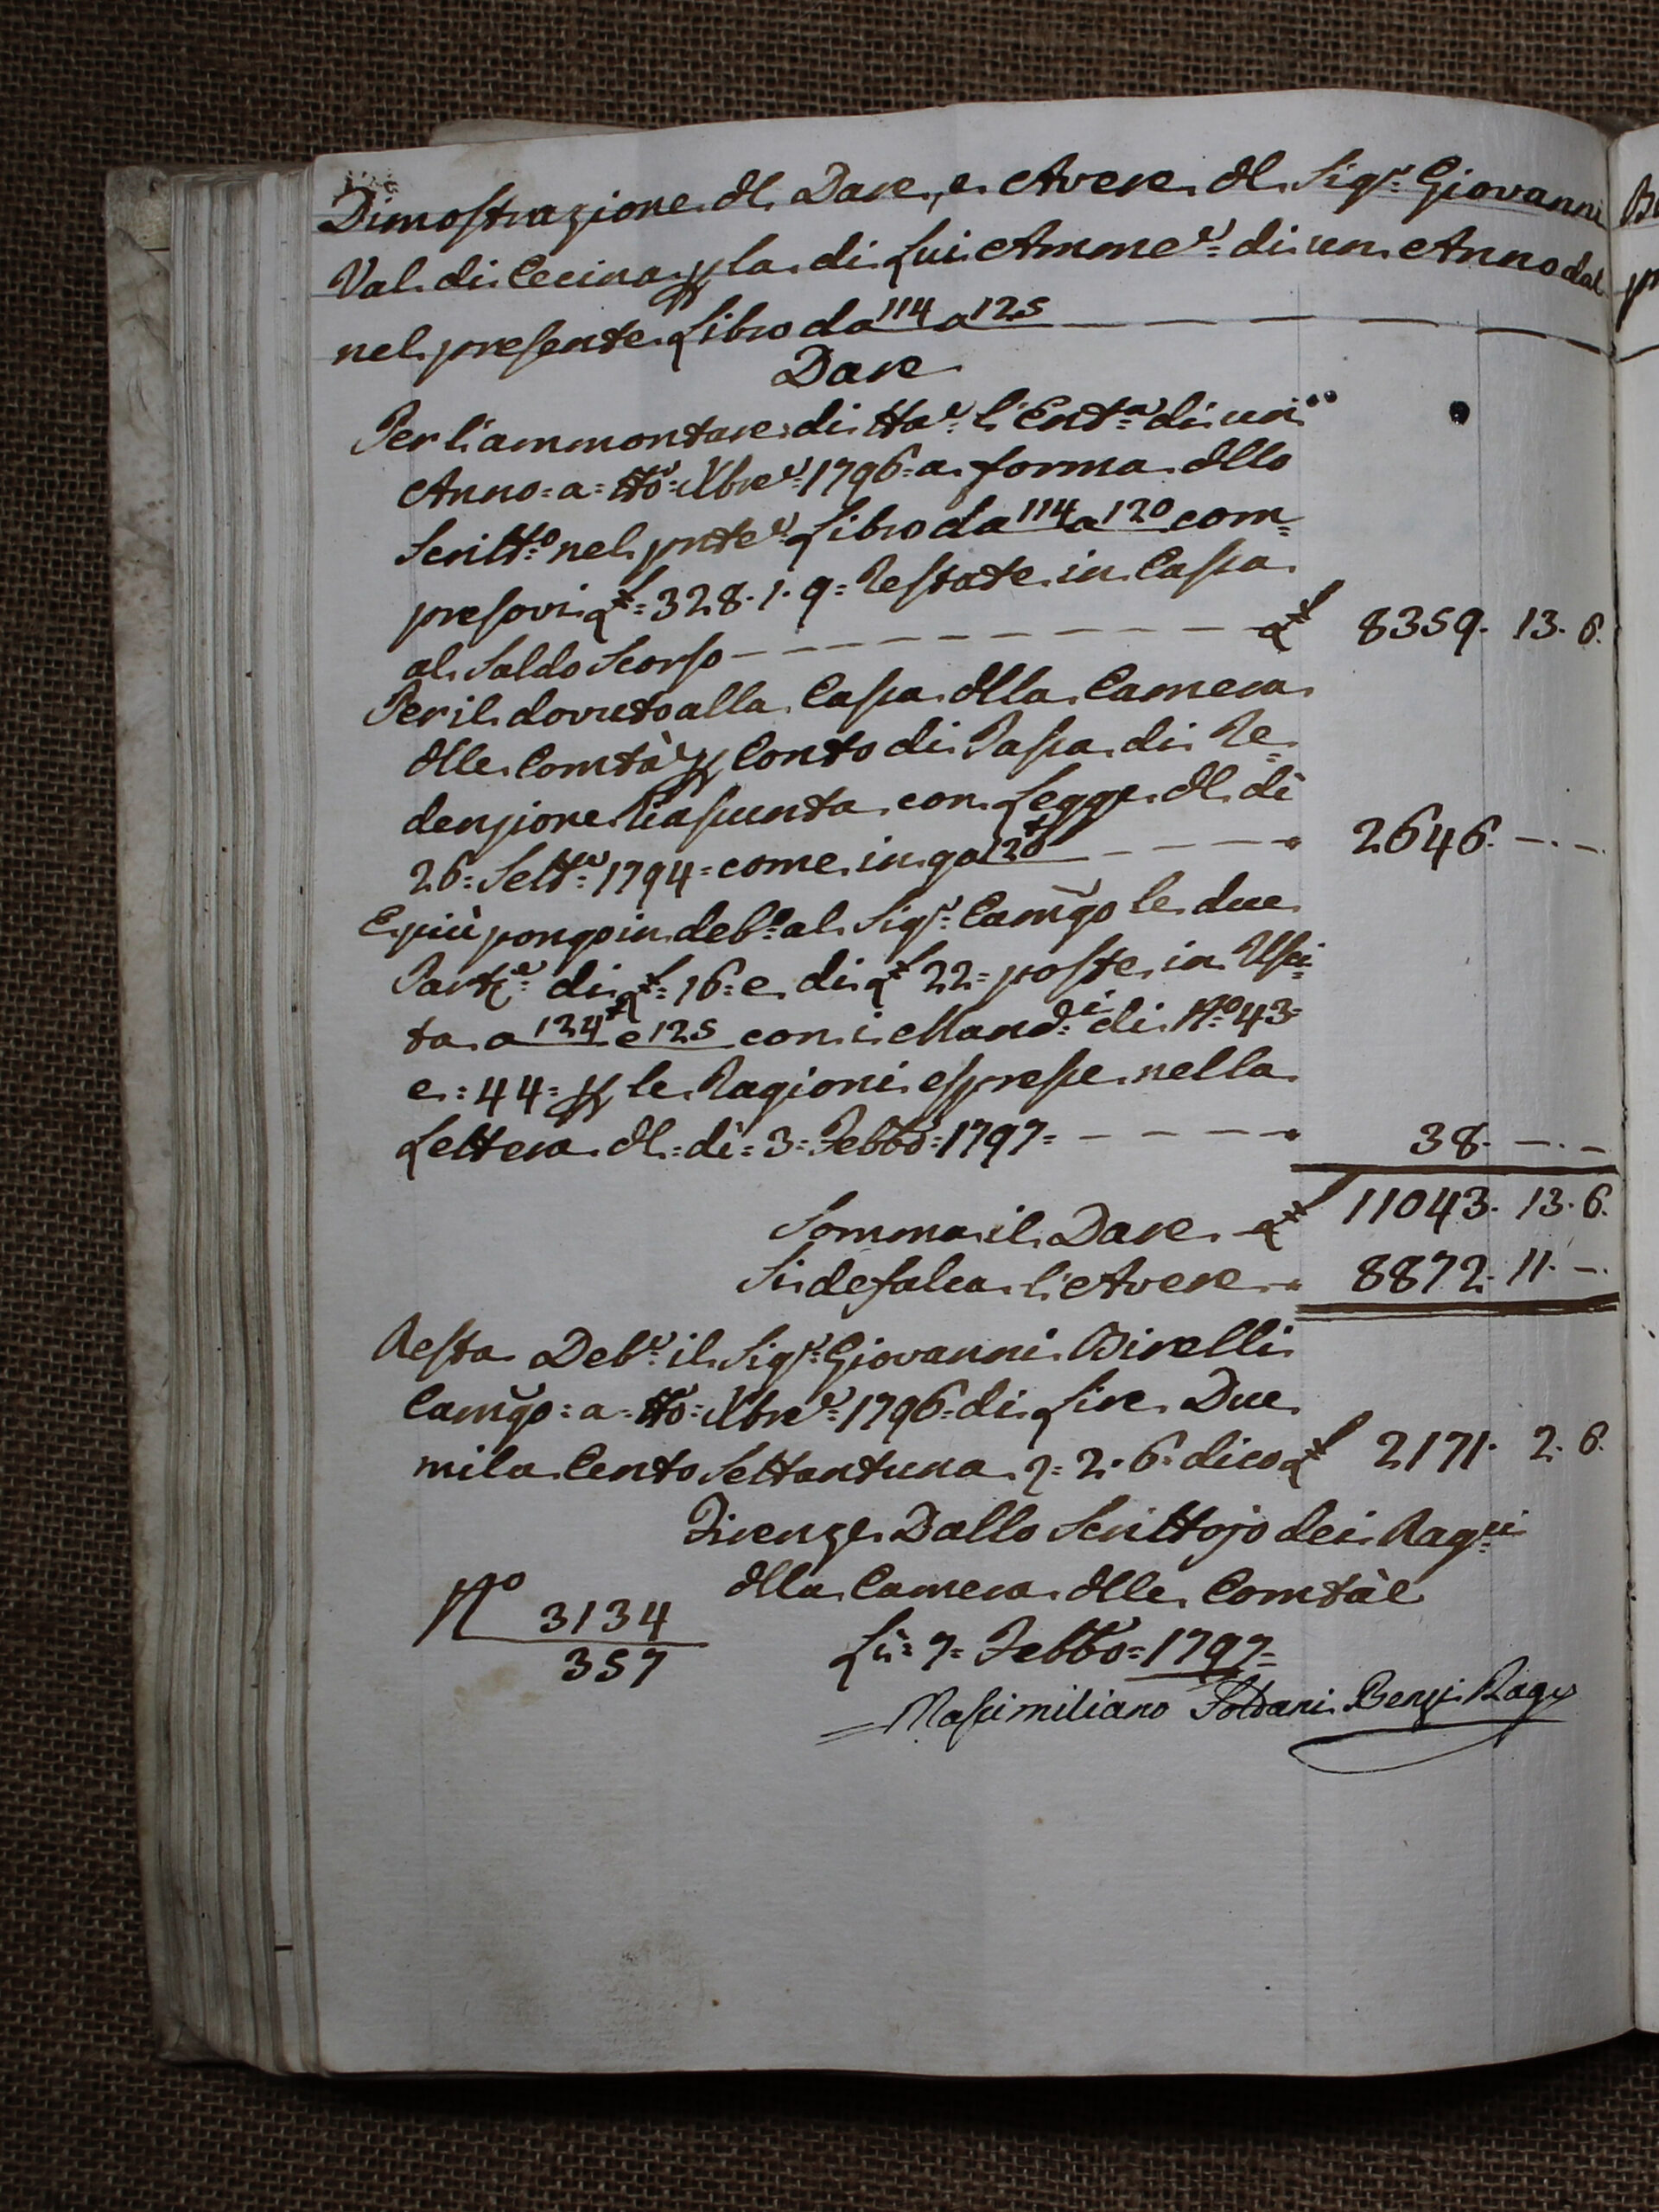 Dimostrazione dl Dare, e Avere dl Sigr. Giovanni
Val di Cecina p la di Lui Amme. di un Anno dal
nel presente Libro da 114 a 125
Dare
Per l'ammontare di tta. l'Enta. di un
Anno = a = tto = Xbre = 1796 = a forma dllo
Scritto. nel pnte. Libro da 114 a 120 com=
presovi £ = 328. 1. 9 = Restate in Cassa
al Saldo Scorso £ 8359. 13. 6.
Per il dovuto alla Cassa dlla Camera
dlle Comtà p Conto di Tassa di Re=
denzione riassunta con Legge dl dì
26 = Sette. 1794 = come in qo 120 2646. -. -.
E più pongo in debo. al Sigr. Camgo le due
Parte. di £ = 16 = e di £ 22 = poste in Usci=
ta a 124 e 125 con i Mandi. di No. 43 =
e = 44 = p le Ragioni espresse nella
Lettera dl = dì = 3 = Febbo = 1797 = 38. -. -
Somma il Dare £ 11043. 13. 6.
Si defalca l'Avere 8872. 11. -.
Resta Debe. il Sigr. Giovanni Birelli
Camgo = a = tto = Xbre = 1796 = di Lire Due
mila Cento Settantuna 2. 6. dico £ 2171. 2. 6.
Firenze Dallo Scrittojo dei Ragri
dlla Camera dlle Comtàe
No 3134
357
Lì = 7 = Febbo = 1797 =
Massimiliano Soldani Benzi Rago